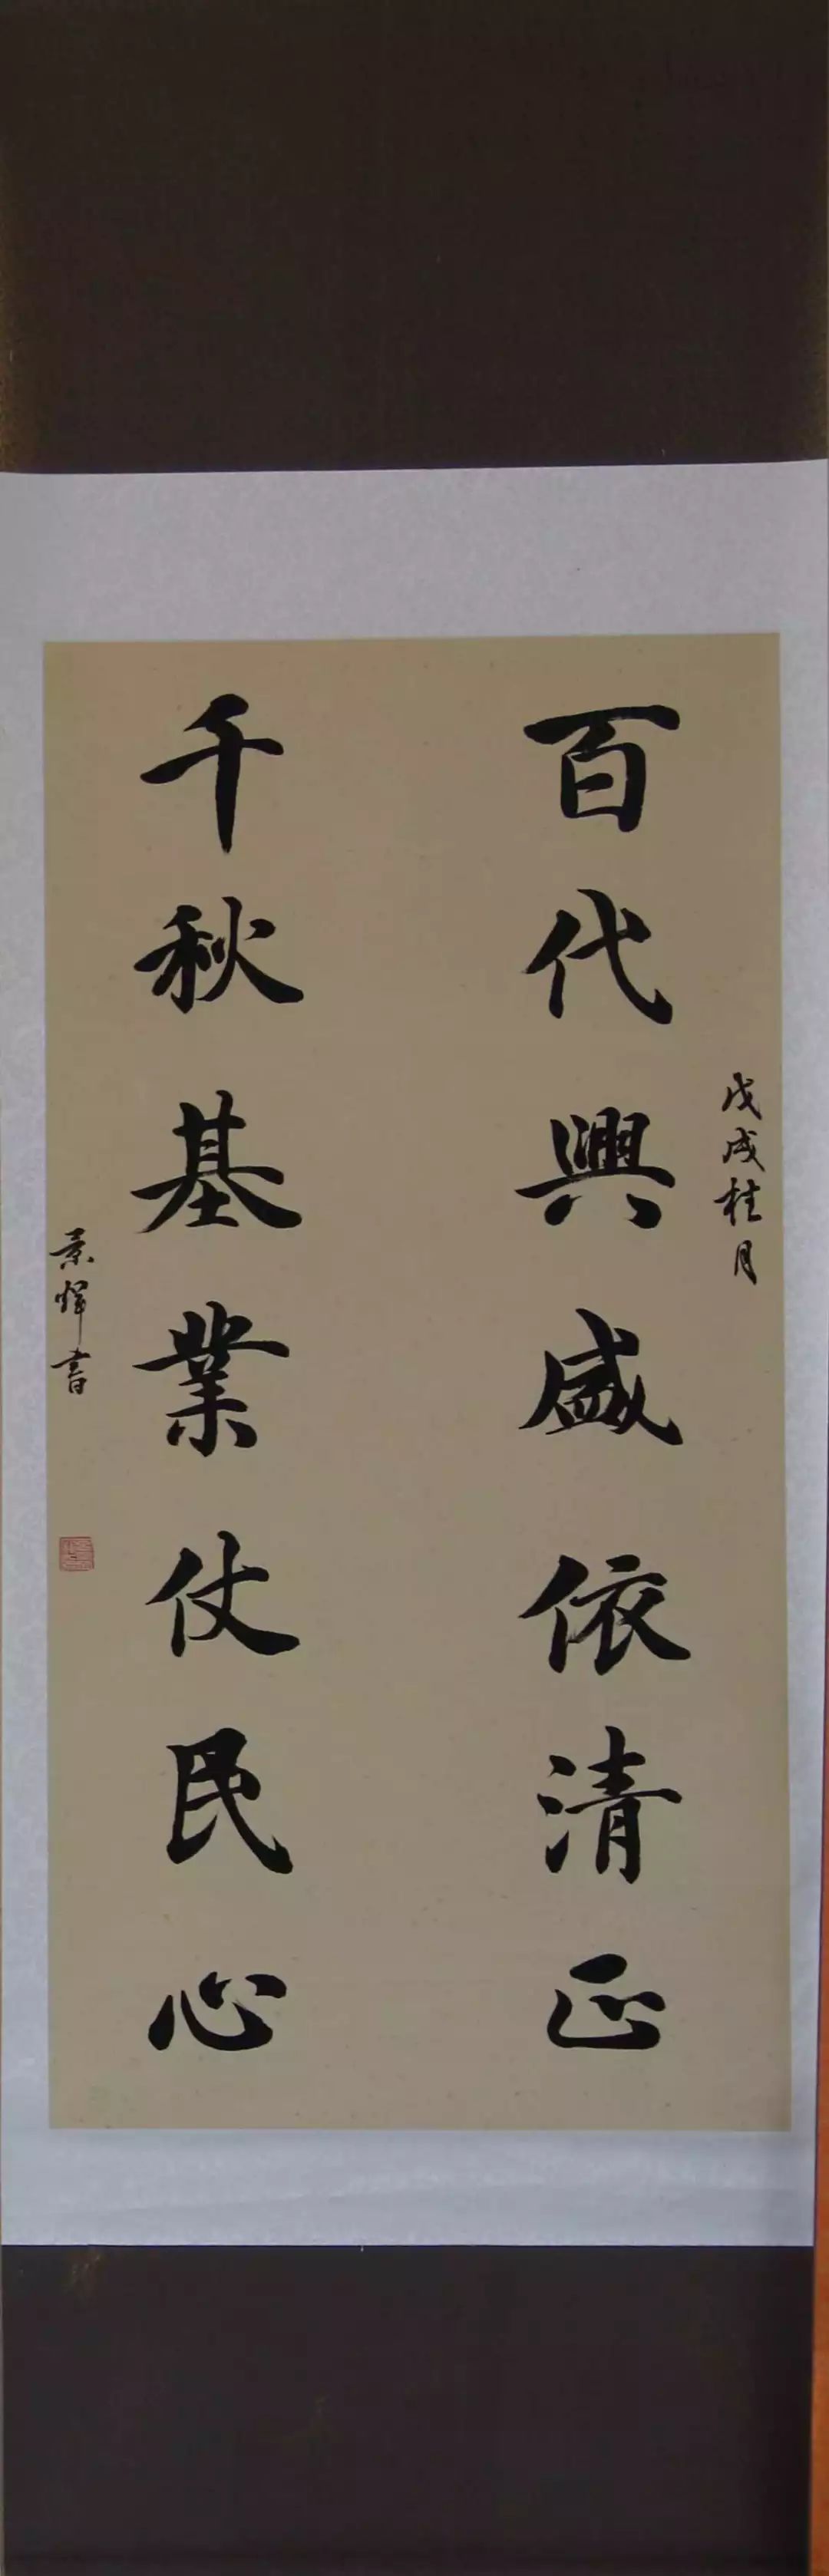 戊戌桂月
百代興盛依清正
千秋基業仗民心
景輝書